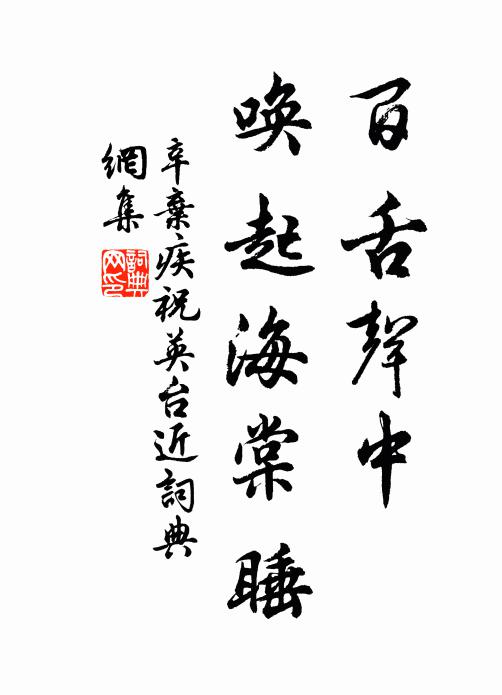 百舌聲中
喚起海棠睡
辛棄疾祝英台近詞典
網集
詞典
网印